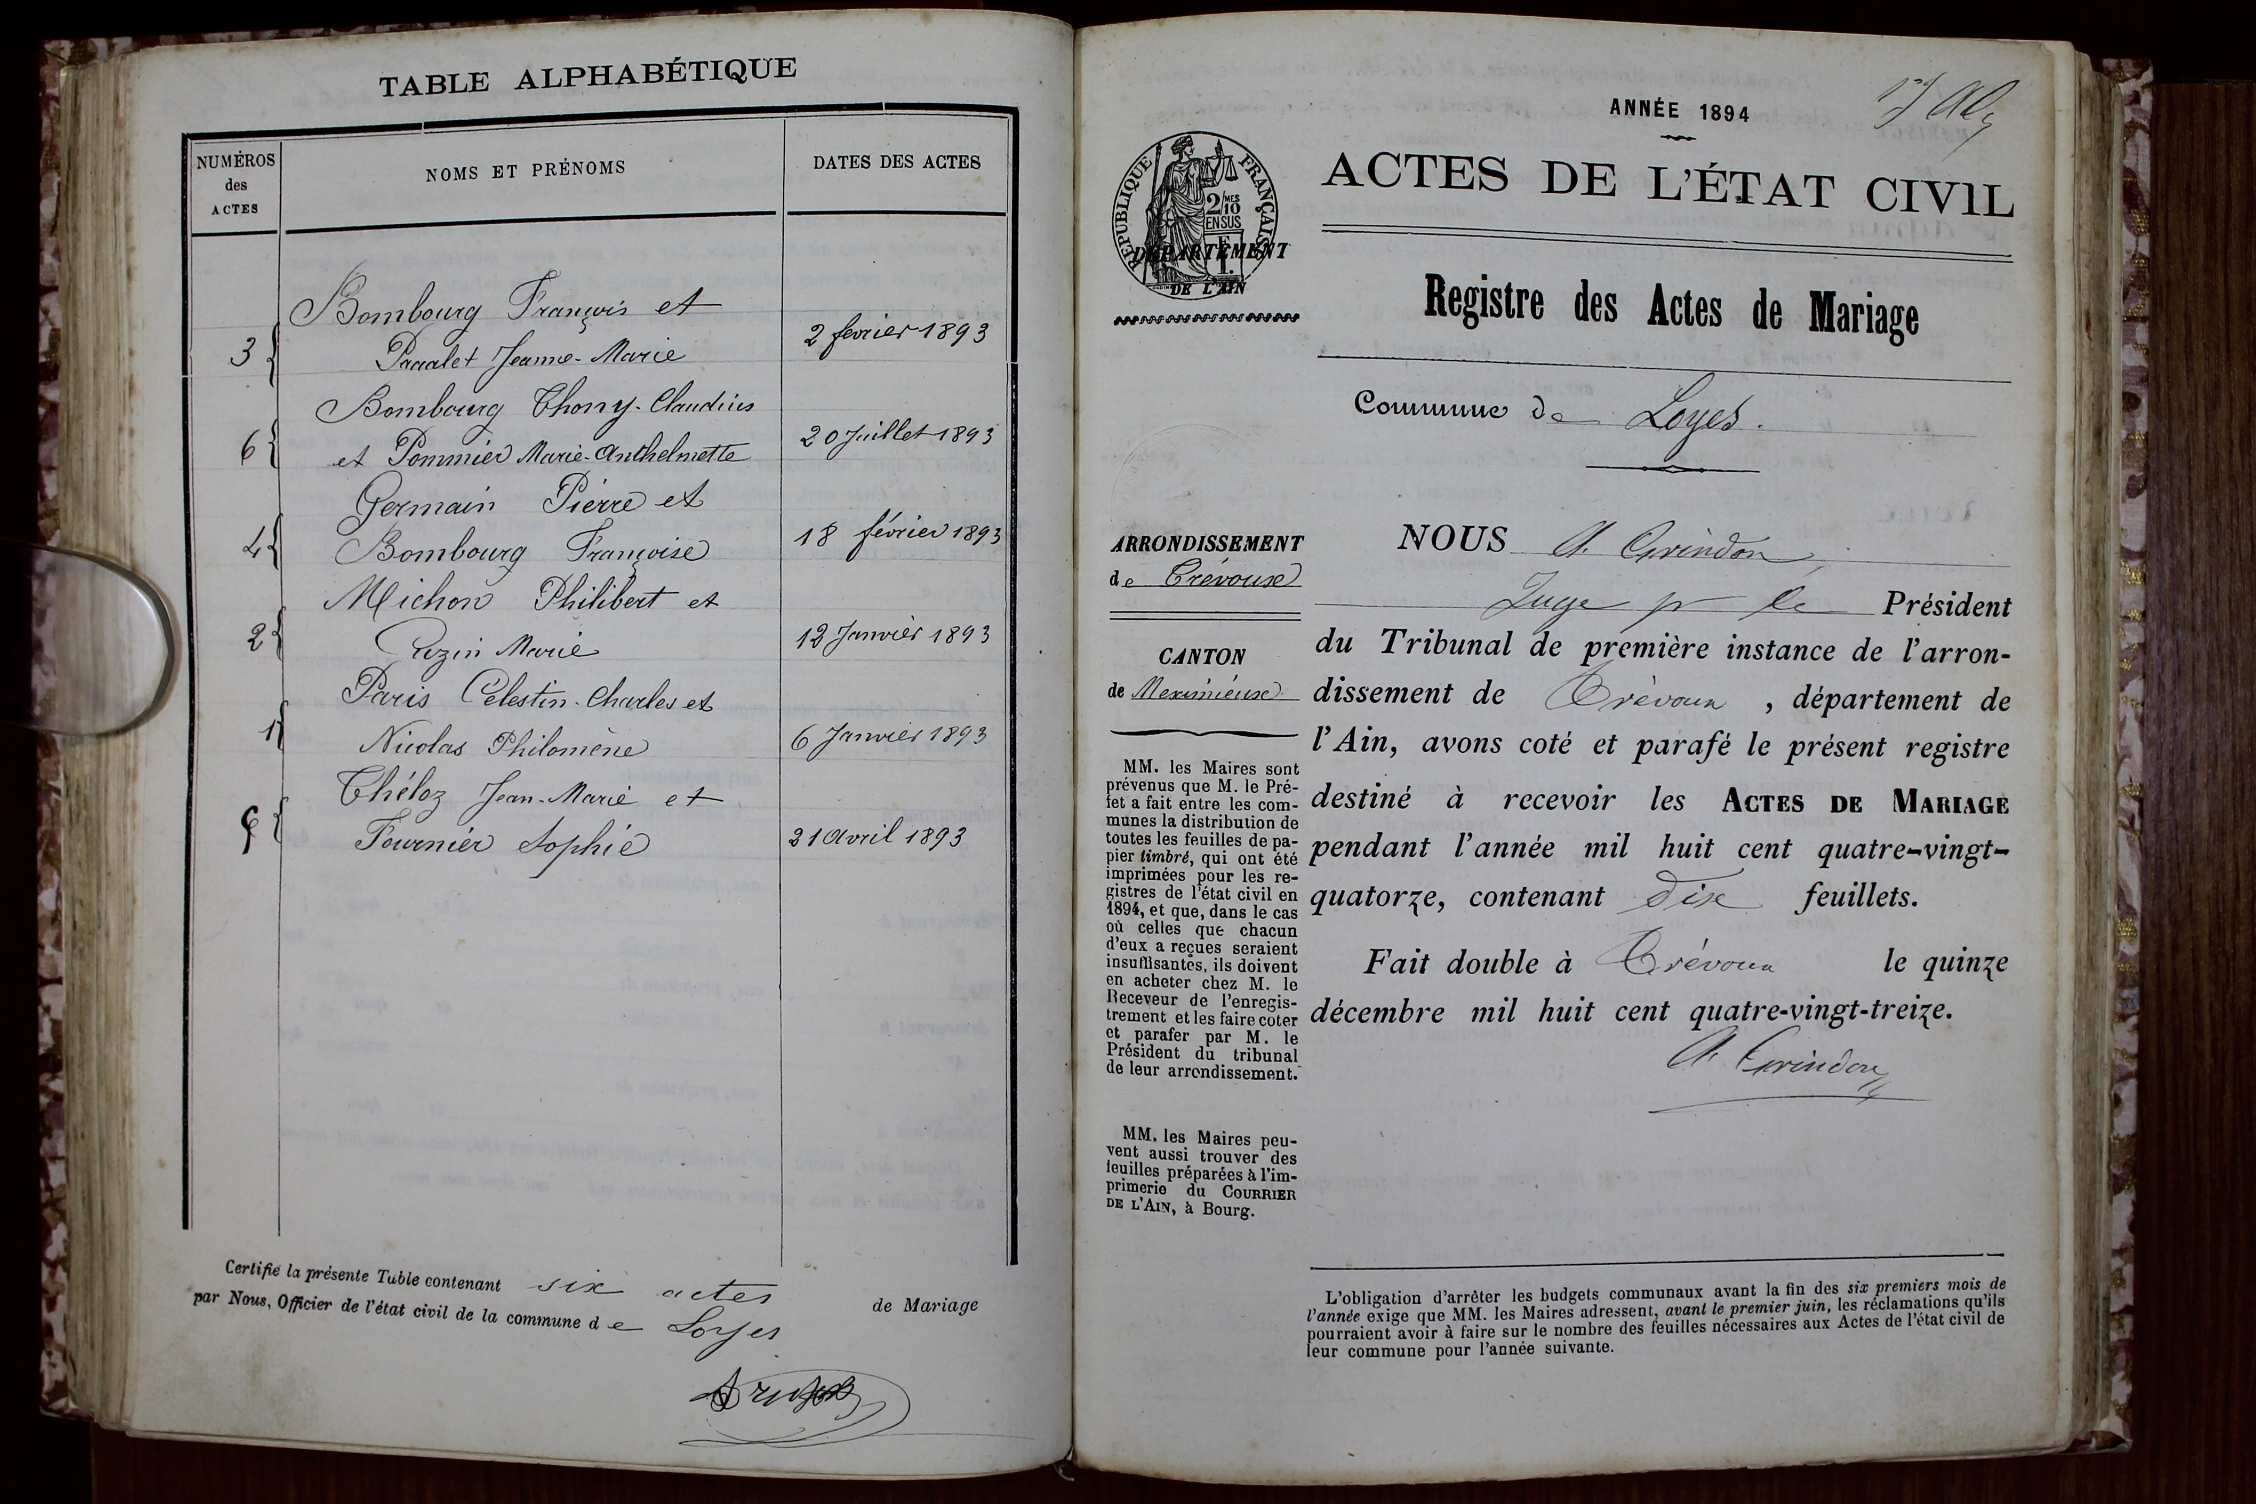 TABLE ALPHABÉTIQUE
NUMÉROS
des
ACTES
NOMS ET PRÉNOMS
DATES DES ACTES
Bombourg François et
3 { Jeanne-Marie 2 fevrier 1893
Bombourg Thony-Claudius
6 { et Pommier Marie-Anthelmette 20 Juillet 1893
Germain Pierre et
4 { Bombourg Françoise 18 février 1893
Michon Philibert et
2 { Cuzin Marie 12 Janvier 1893
Paris Celestin-Charles et
1 { Nicolas Philomène 6 Janvier 1893
Théloz Jean-Marie et
5 { Fournier Sophie 21 Avril 1893
Certifié la présente Table contenant six actes de Mariage
par Nous, Officier de l'état civil de la commune de Loyes
ANNÉE 1894
RÉPUBLIQUE FRANÇAISE
2/10 MES
EN SUS
DÉPARTEMENT
DE L'AIN
ACTES DE L'ÉTAT CIVIL
Registre des Actes de Mariage
Commune de Loyes.
ARRONDISSEMENT
de Trévoux
CANTON
de Meximieux
MM. les Maires sont
prévenus que M. le Pré-
fet a fait entre les com-
munes la distribution de
toutes les feuilles de pa-
pier timbré, qui ont été
imprimées pour les re-
gistres de l'état civil en
1894, et que, dans le cas
où celles que chacun
d'eux a reçues seraient
insuffisantes, ils doivent
en acheter chez M. le
Receveur de l'enregis-
trement et les faire coter
et parafer par M. le
Président du tribunal
de leur arrondissement.
MM. les Maires peu-
vent aussi trouver des
feuilles préparées à l'im-
primerie du COURRIER
DE L'AIN, à Bourg.
NOUS A. Grindon,
Juge pr le Président
du Tribunal de première instance de l'arron-
dissement de Trévoux, département de
l'Ain, avons coté et parafé le présent registre
destiné à recevoir les ACTES DE MARIAGE
pendant l'année mil huit cent quatre-vingt-
quatorze, contenant dix feuillets.
Fait double à Trévoux le quinze
décembre mil huit cent quatre-vingt-treize.
A. Grindon
L'obligation d'arrêter les budgets communaux avant la fin des six premiers mois de
l'année exige que MM. les Maires adressent, avant le premier juin, les réclamations qu'ils
pourraient avoir à faire sur le nombre des feuilles nécessaires aux Actes de l'état civil de
leur commune pour l'année suivante.